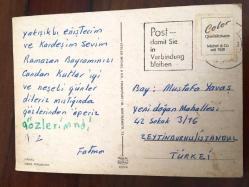 yakışıklı eniştecim
ve Kardeşim Sevim
Ramazan Bayramınızı
Candan Kutlar iyi
ve neşeli günler
dileriz
gözlerinden öperiz
gözlerimnd,
Fatma
Post -
damit Sie
in
Verbindung
bleiben
Color
Bay: Mustafa Yavaş
yeni doğan Mahallesi
42 Sokak 3/16
ZEYTİNBURNU/İSTANBUL
TÜRKEİ